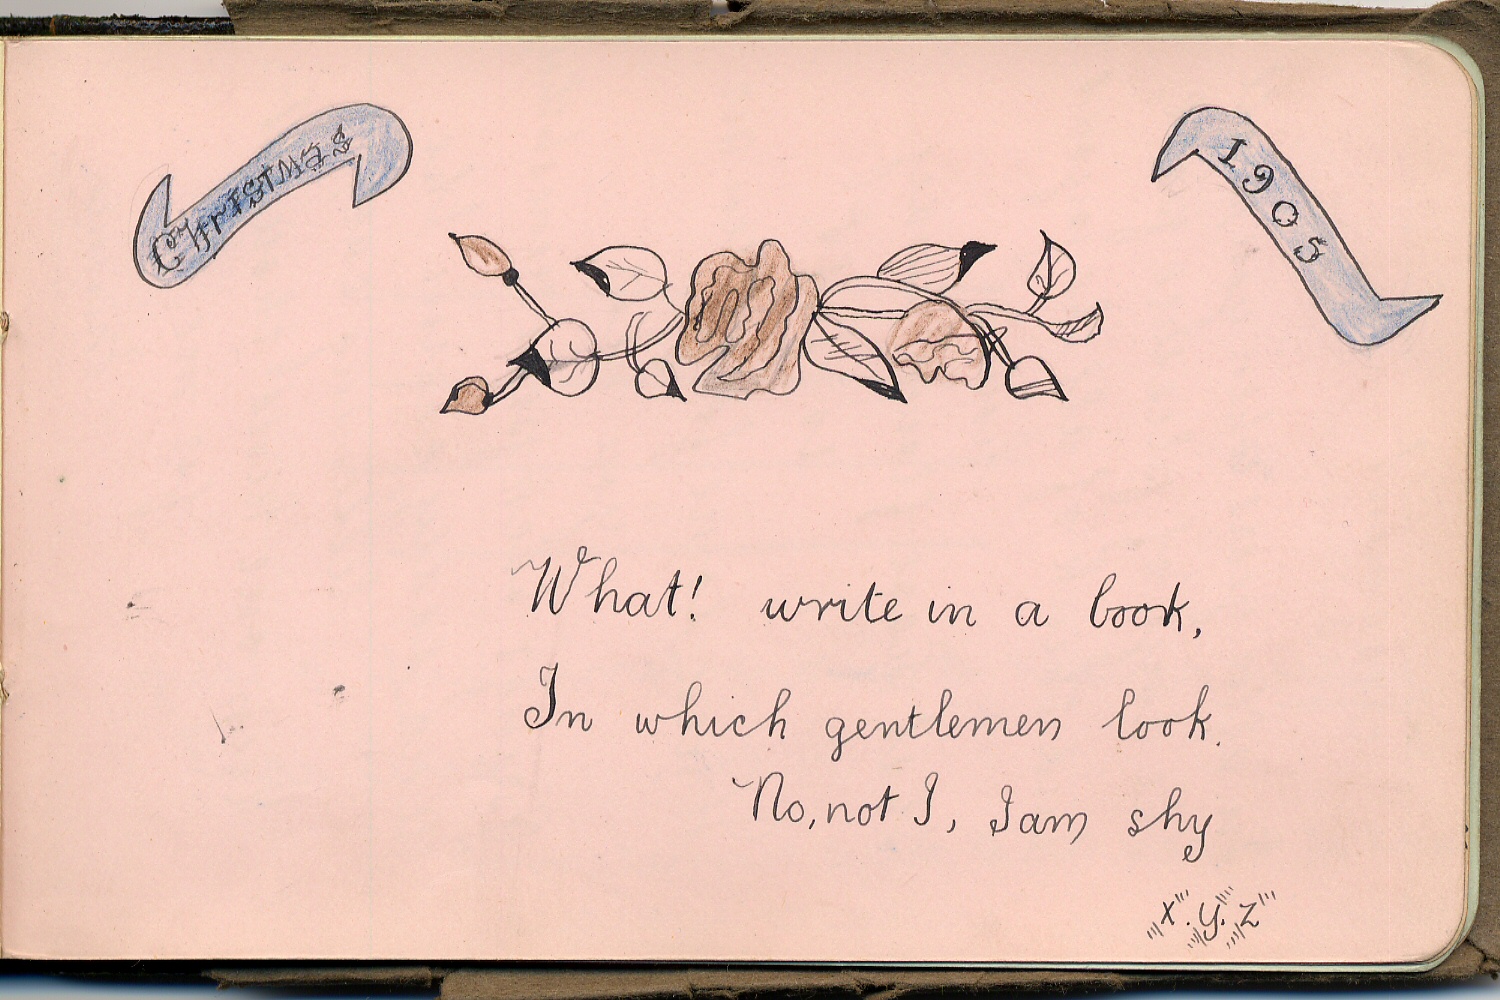 Christmas
1905
What! write in a book,
In which gentlemen look.
No, not I, I am shy
"X". "Y". "Z"